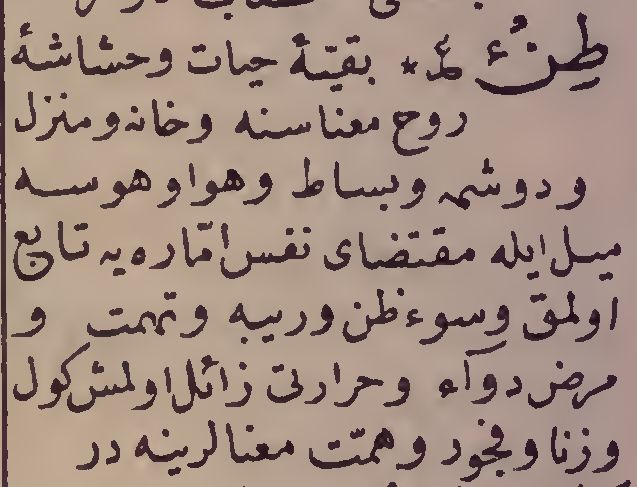 طِنْءُ ع * بقيّۀ حيات وحشاشۀ
روح معناسنه وخانه ومنزل
ودوشمه وبساط وهوا وهوسه
ميل ايله مقتضاى نفس امّاره يه تابع
اولمق وسوءظن وريبه وتهمت و
مرض دوآء وحرارتى زائل اولمش كول
وزنا وفجود وهمّت معنالرينه در